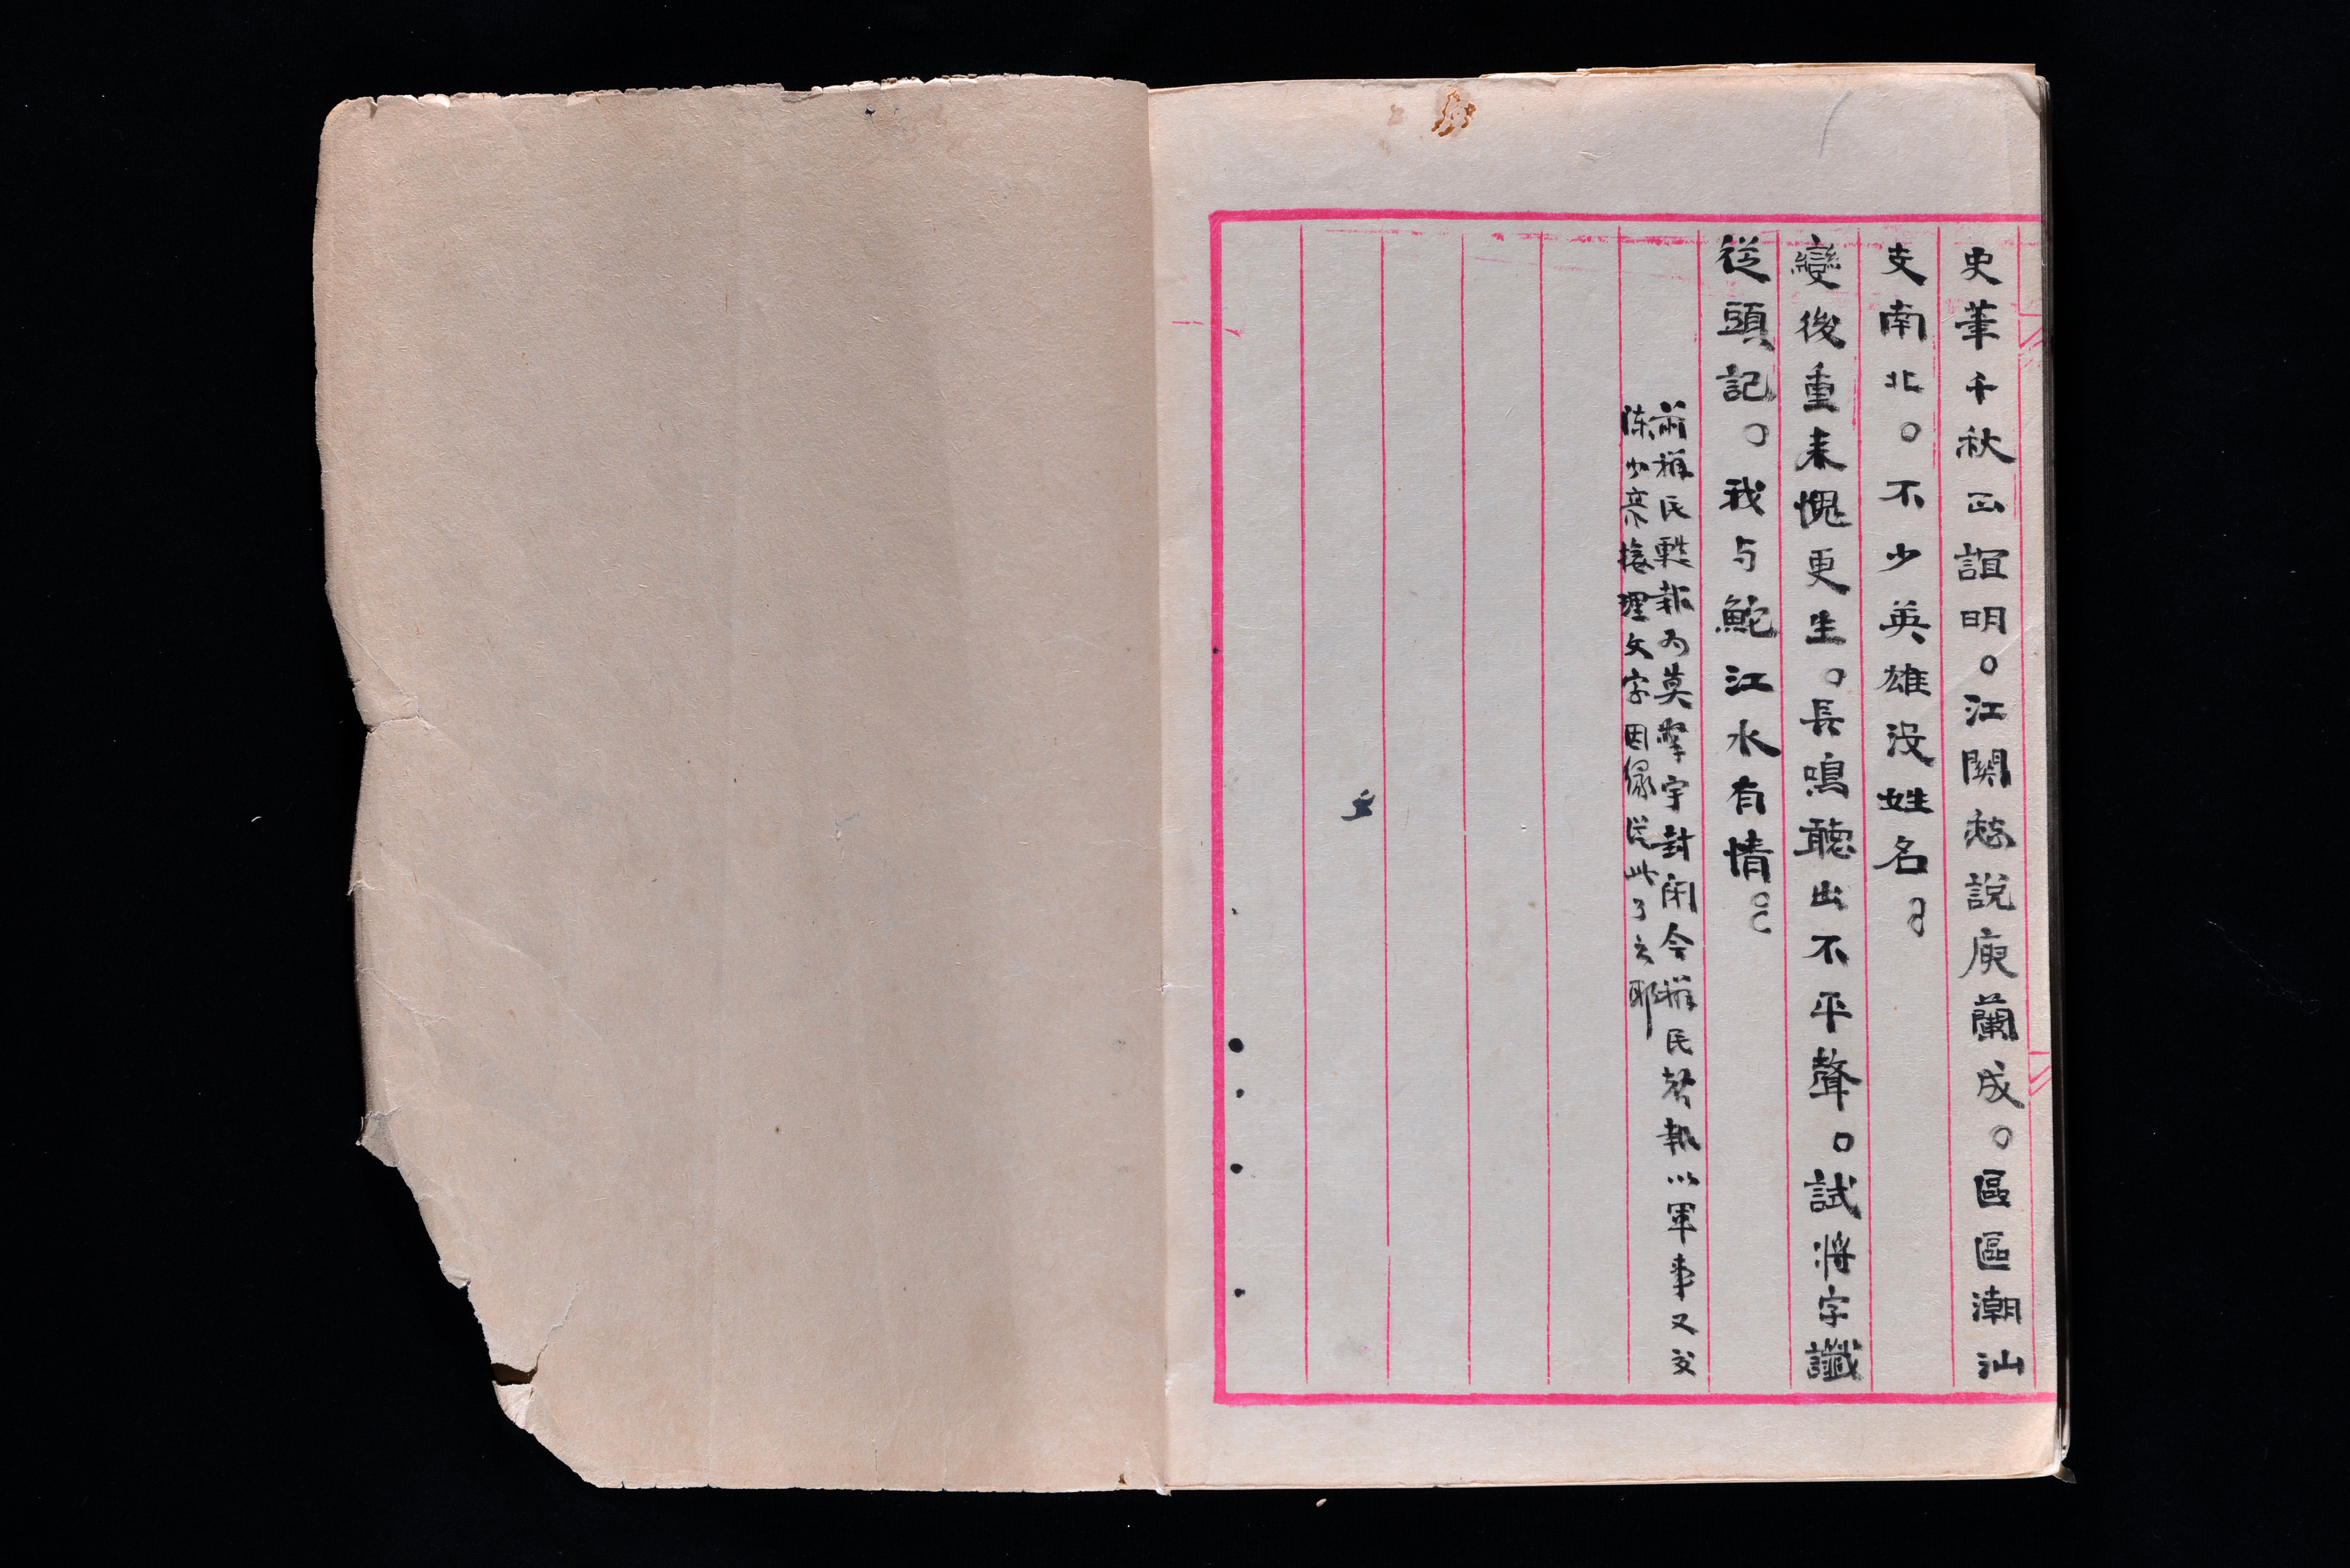 史筆千秋正誼明。江關愁說庾蘭成。區區潮汕
支南北。不少英雄沒姓名。
變後重來愧更生。長鳴聽出不平聲。試將字讖
從頭記。我与鮀江水有情。
前權民甦報為莫擎宇封閉今權民報以軍事又交
陳少豪接理文字因緣從此了之耶